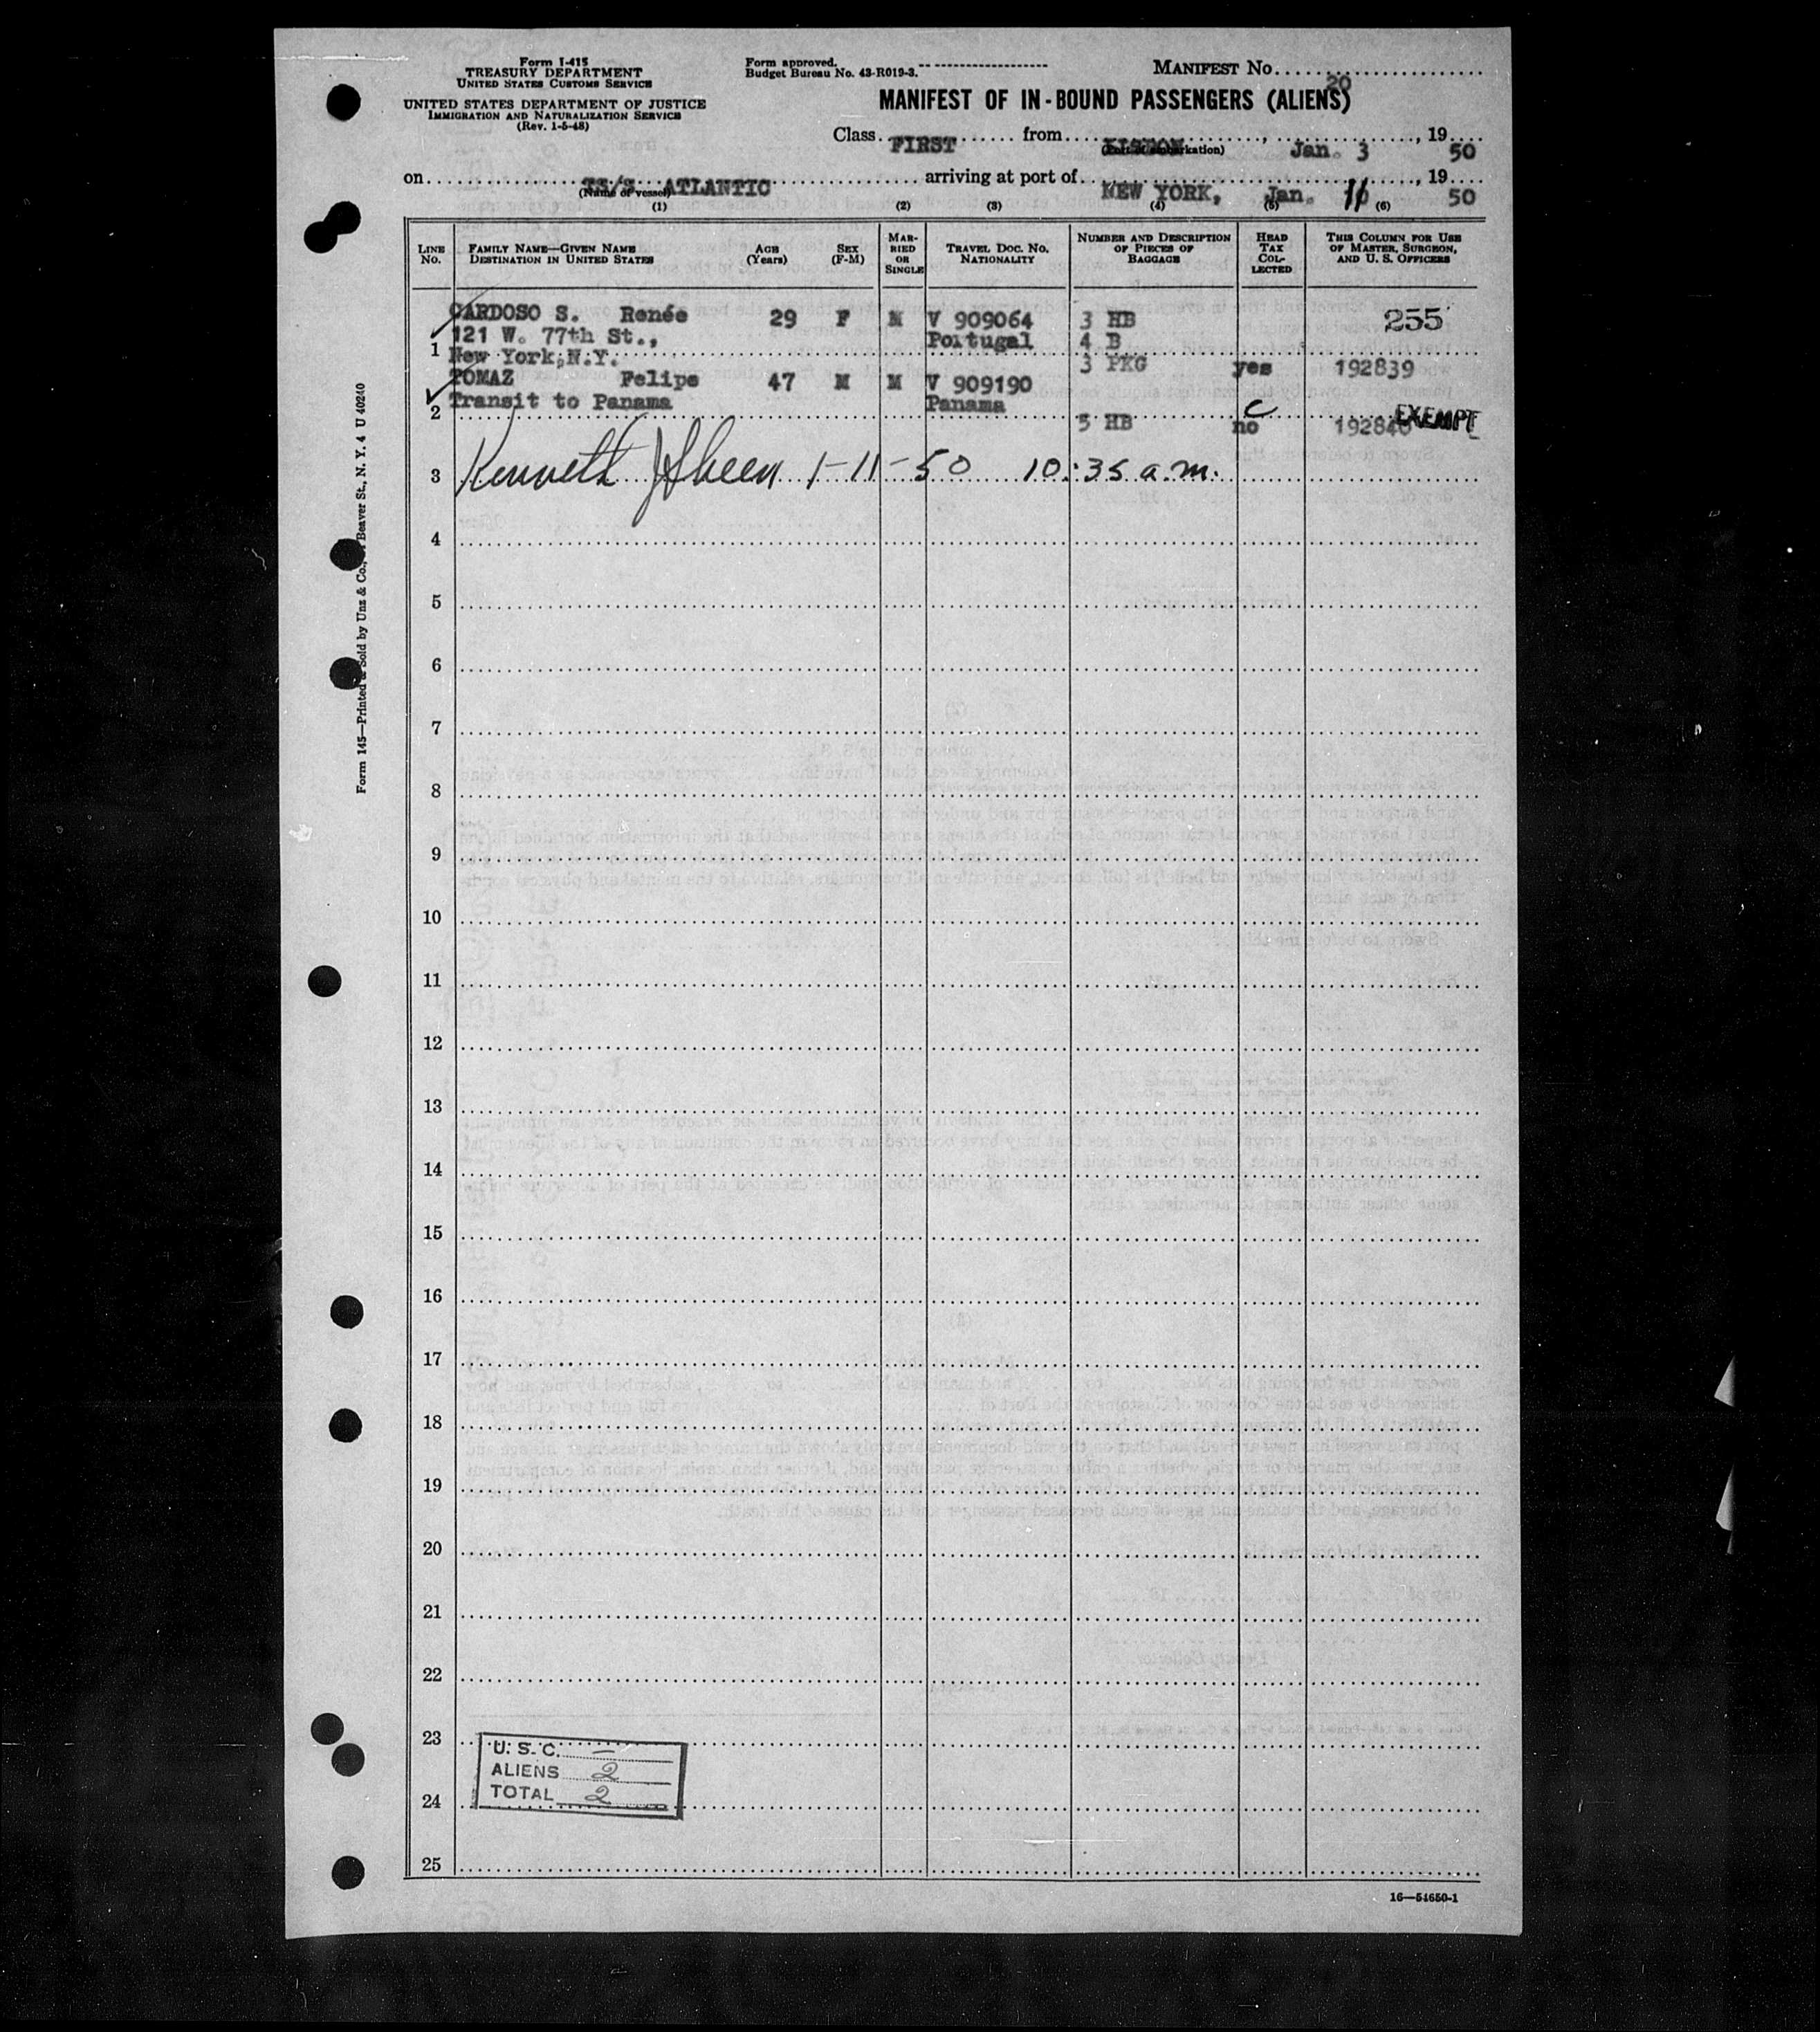 Form I-415
TREASURY DEPARTMENT
UNITED STATES CUSTOMS SERVICE
UNITED STATES DEPARTMENT OF JUSTICE
IMMIGRATION AND NATURALIZATION SERVICE
(Rev. 1-5-48)
Form approved.
Budget Bureau No. 43-R019-3.
MANIFEST No. 20
MANIFEST OF IN-BOUND PASSENGERS (ALIENS)
Class FIRST from LISBON, Jan. 3, 19 50
(Port of embarkation)
on TS/S ATLANTIC arriving at port of NEW YORK, Jan. 11, 19 50
(Name of vessel)
(1) (2) (3) (4) (5) (6)
LINE No. FAMILY NAME—GIVEN NAME DESTINATION IN UNITED STATES AGE (Years) SEX (F-M) MARRIED OR SINGLE TRAVEL DOC. NO. NATIONALITY NUMBER AND DESCRIPTION OF PIECES OF BAGGAGE HEAD TAX COLLECTED THIS COLUMN FOR USE OF MASTER, SURGEON, AND U. S. OFFICERS
CARDOSO S. Renée 29 F M V 909064 3 HB 255
121 W. 77th St., Portugal 4 B
1 New York, N.Y. 3 PKG yes 192839
TOMAZ Felipe 47 M M V 909190
2 Transit to Panama Panama C EXEMPT
5 HB no 192840
3 Kenneth J Skeen 1-11-50 10:35 a.m.
4
5
6
7
8
9
10
11
12
13
14
15
16
17
18
19
20
21
22
23
U. S. C. —
ALIENS 2
TOTAL 2
24
25
16—54650-1
Form 145—Printed & Sold by Unz & Co., Beaver St., N. Y. 4 U 40240